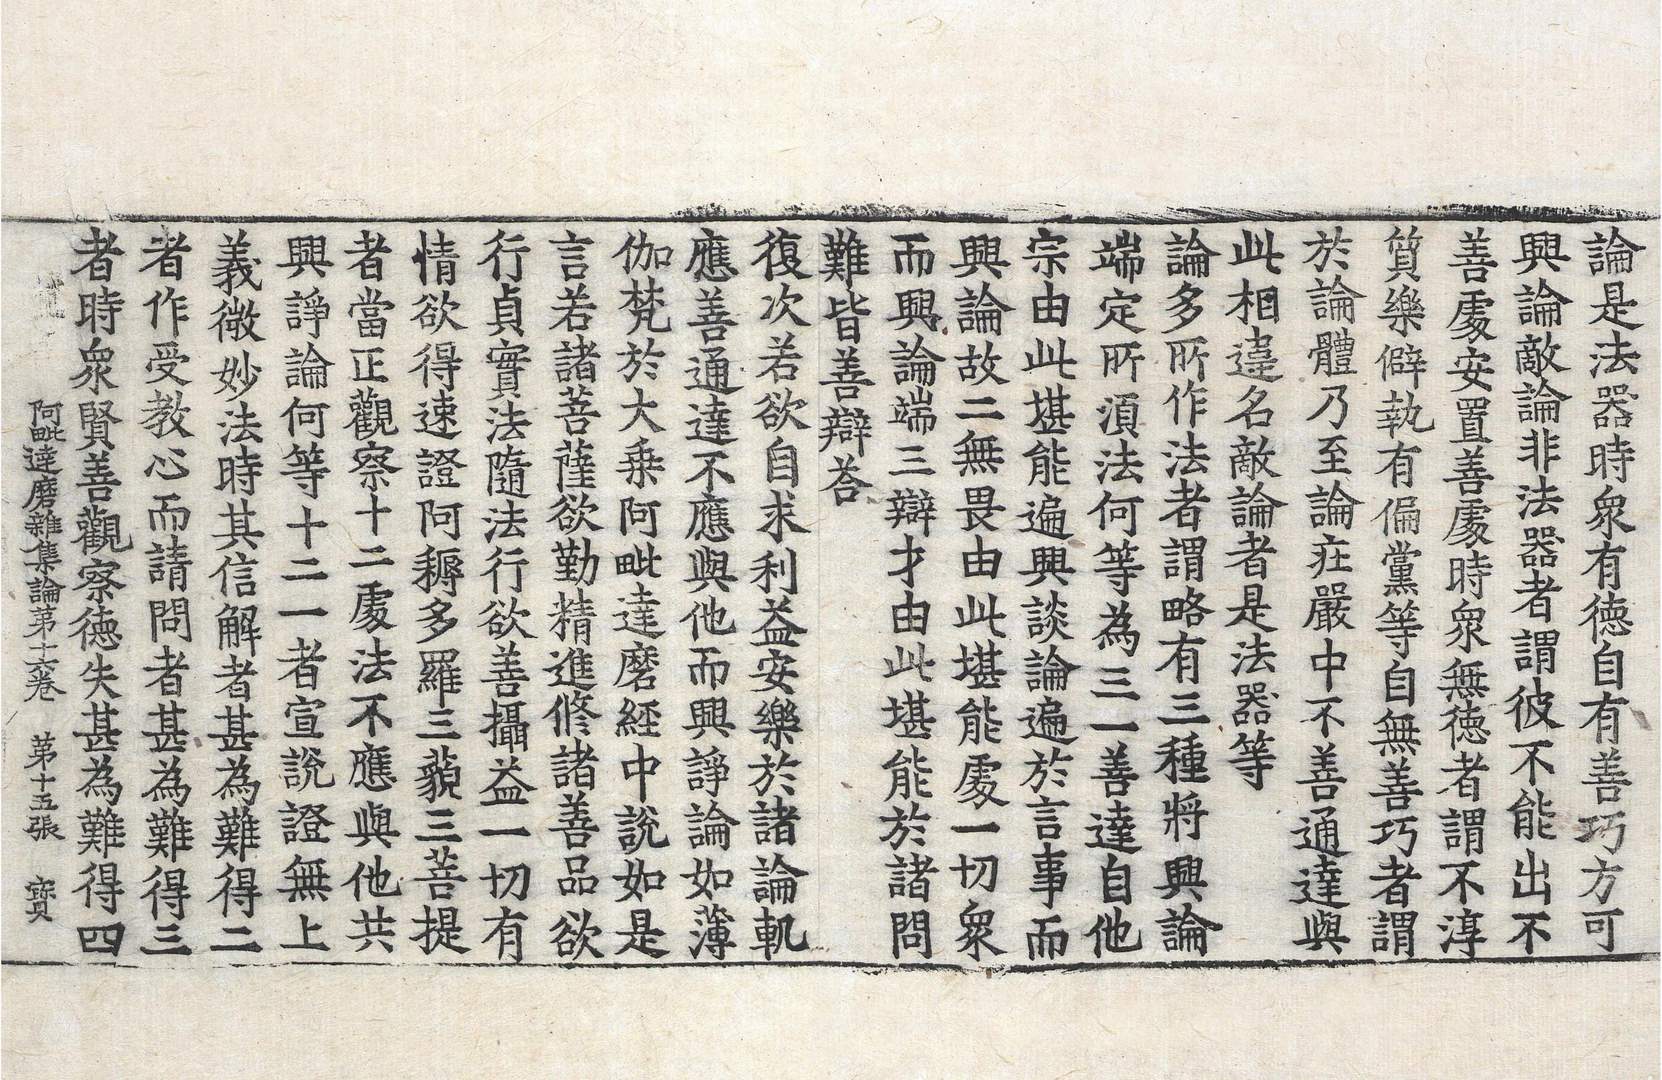 論是法器時衆有德自有善巧方可
興論敵論非法器者謂彼不能出不
善處安置善處時衆無德者謂不淳
質樂僻執有偏黨等自無善巧者謂
於論體乃至論莊嚴中不善通達與
此相違名敵論者是法器等
論多所作法者謂略有三種將興論
端定所須法何等為三一善達自他
宗由此堪能遍興談論遍於言事而
興論故二無畏由此堪能處一切衆
而興論端三辯才由此堪能於諸問
難皆善辯荅
復次若欲自求利益安樂於諸論軌
應善通達不應與他而興諍論如薄
伽梵於大乘阿毗達磨經中說如是
言若諸菩薩欲勤精進修諸善品欲
行真實法隨法行欲善攝益一切有
情欲得速證阿耨多羅三藐三菩提
者當正觀察十二處法不應與他共
興諍論何等十二一者宣說證無上
義微妙法時其信解者甚為難得二
者作受教心而請問者甚為難得三
者時衆賢善觀察德失甚為難得四
阿毗達磨雜集論第十六卷 第十五張 寳